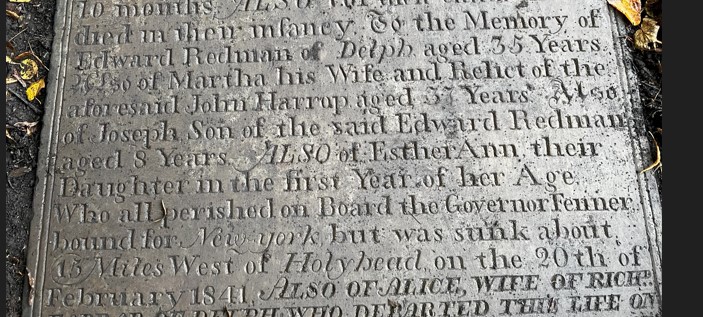 10 months. ALSO
died in their infancy. To the Memory of
Edward Redman of Delph aged 35 Years
Also of Martha his Wife and Relict of the
aforesaid John Harrop aged 37 Years Also
of Joseph Son of the said Edward Redman
aged 8 Years. ALSO of Esther Ann their
Daughter in the first Year of her Age
Who all perished on Board the Governor Fenner
bound for New-york but was sunk about
15 Miles West of Holyhead on the 20th of
February 1841, ALSO OF ALICE, WIFE OF RICHD
OF DELPH WHO DEPARTED THIS LIFE ON